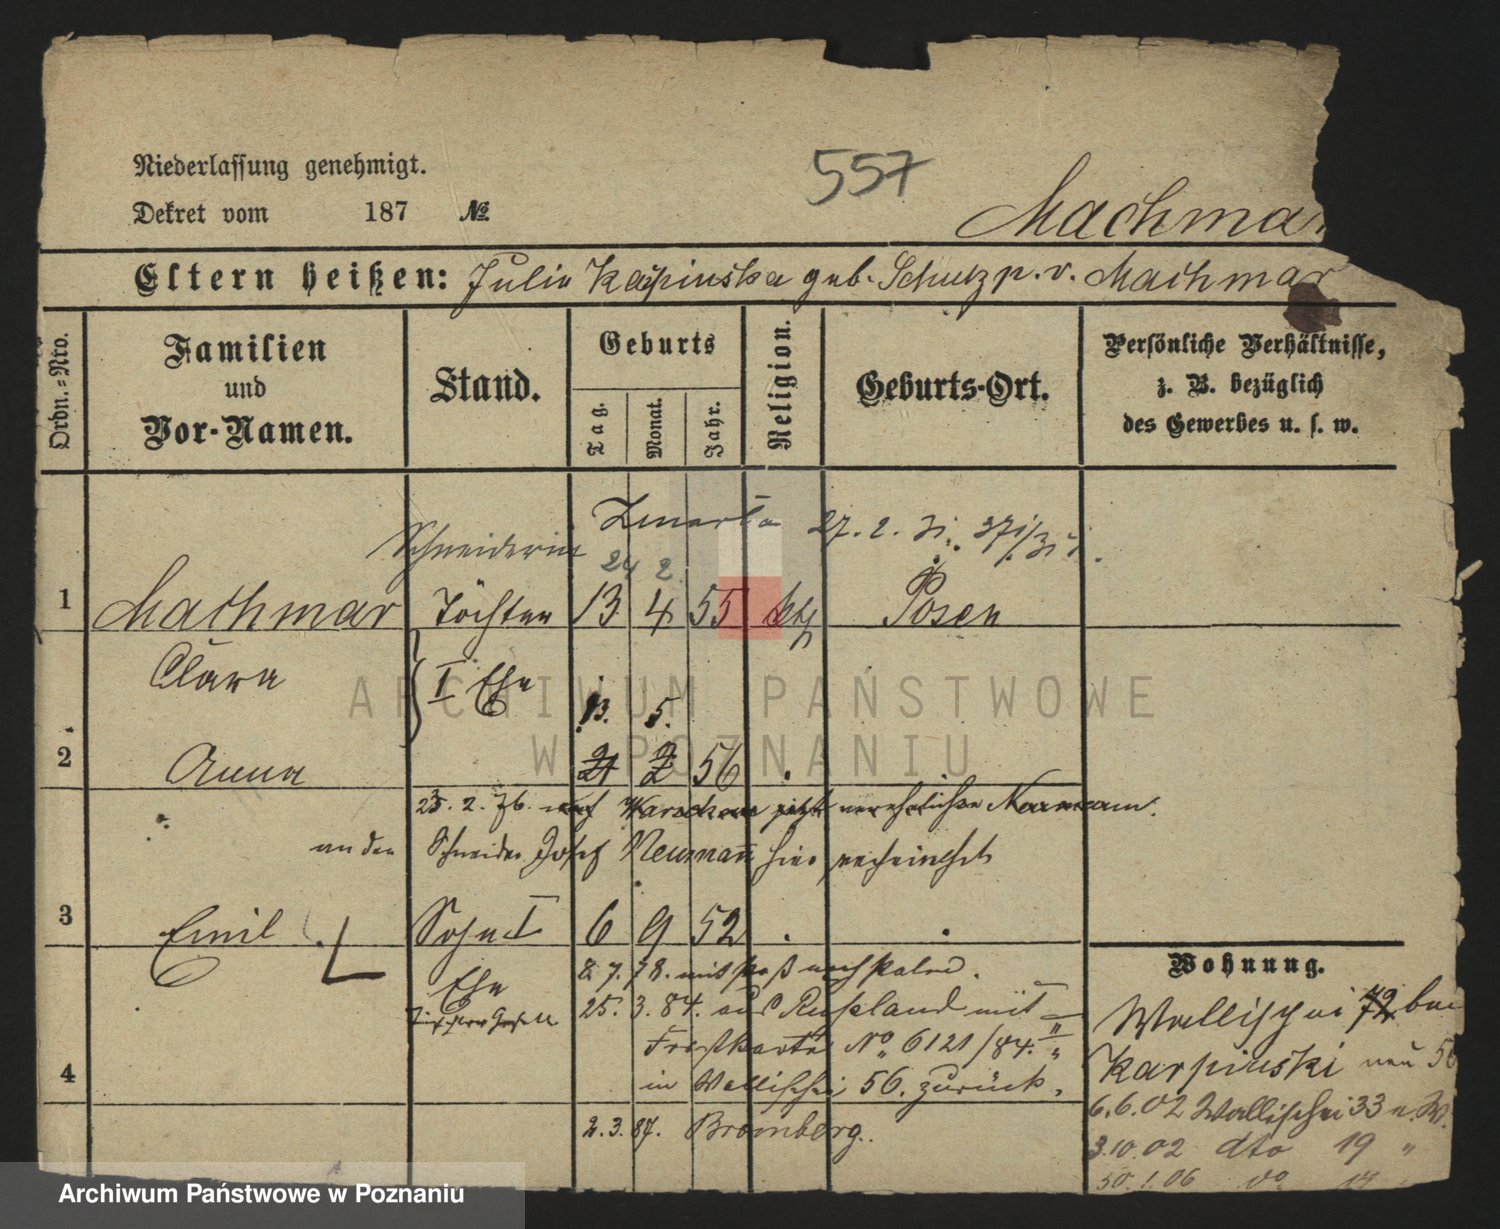 Niederlassung genehmigt.
557
Dekret vom 187 №
Machmar
Eltern heißen: Julie Karpinska geb. Schulz p. v. Machmar
Ordn.-Nro.
Familien
und
Vor-Namen.
Stand.
Geburts
Tag.
Monat.
Jahr.
Religion.
Geburts-Ort.
Persönliche Verhältnisse,
z. B. bezüglich
des Gewerbes u. s. w.
27. 2.
Schneiderin
24 2.
1 Machmar Töchter 13 4 55 kth Posen
Clara I Ehe
13. 5.
2 Anna 21 2 56 "
23. 2. 76. nach Warschau jetzt verehelichte Naumann.
an den Schneider Josef Neumann hier verheirathet
3 Emil Sohn I 6 9 52 " "
Ehe
8. 7. 78. mit Paß nach Polen.
Tischler Gesell
25. 3. 84. aus Rußland mit
Paßkarte No. 6121/84.
4 in Wallischei 56. zurück.
2. 3. 87. Bromberg.
Wohnung.
Wallischei 72 bei
Karpinski neu 56
6. 6. 02 Wallischei 33 n. W.
3. 10. 02 dto 19 "
30. 1. 06 do
ARCHIWUM PAŃSTWOWE
W POZNANIU
Archiwum Państwowe w Poznaniu